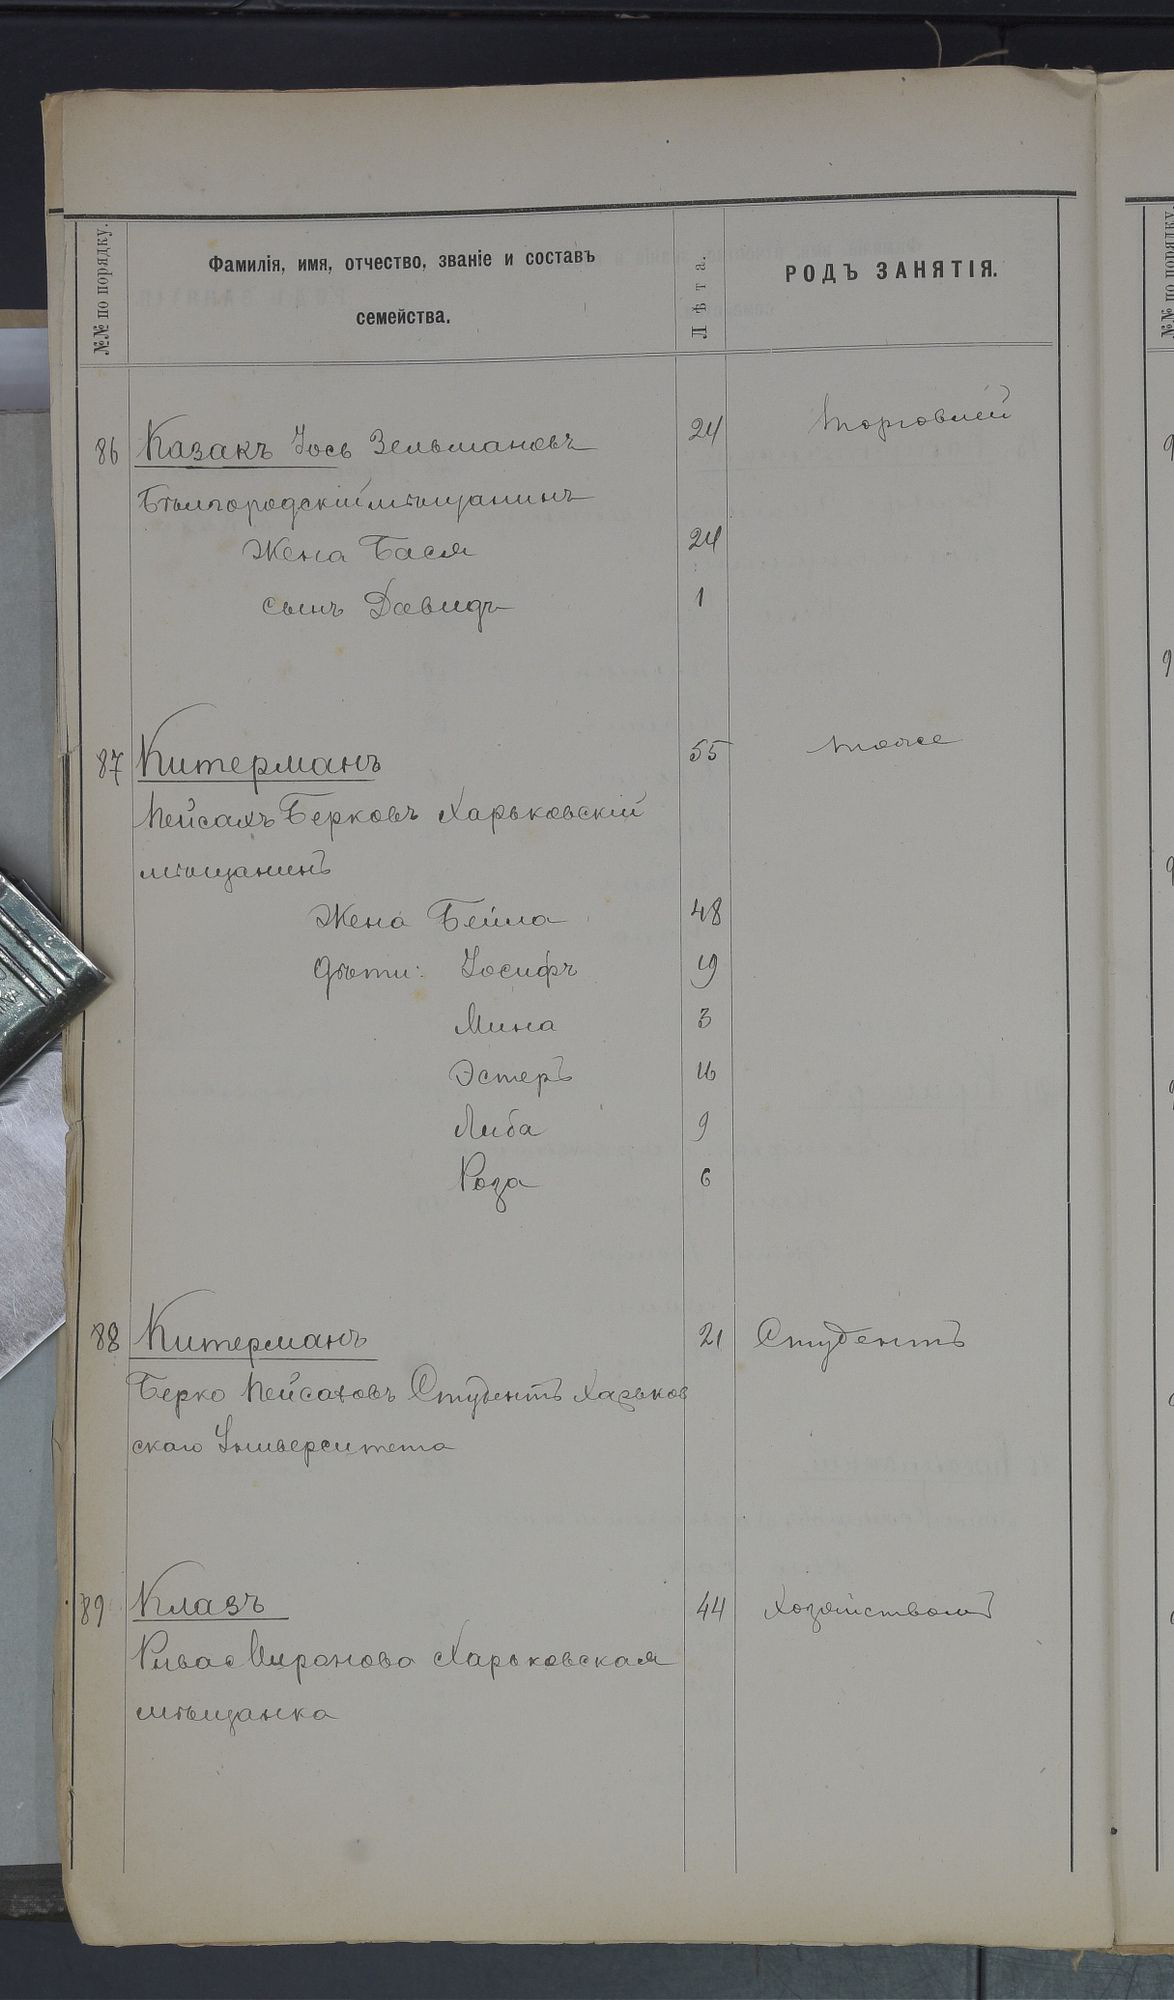 №№ по порядку.
Фамилія, имя, отчество, званіе и составъ
семейства.
Лѣта.
РОДЪ ЗАНЯТІЯ.
86 Казакъ Іось Зельмановъ 24 торговлей
Бѣлгородскій мѣщанинъ
Жена Бася 24
сынъ Давидъ 1
87 Китерманъ 55 тоже
Пейсахъ Берковъ Харьковскій
мѣщанинъ
Жена Бейла 48
дѣти: Іосифъ 19
Мина 3
Эстеръ 16
Либа 9
Роза 6
88 Китерманъ 21 Студентъ
Берко Пейсаховъ Студентъ Харьков
скаго Университета
89 Клазъ 44 хозяйствомъ
Рива Миронова Харьковская
мѣщанка
№№ по порядку.